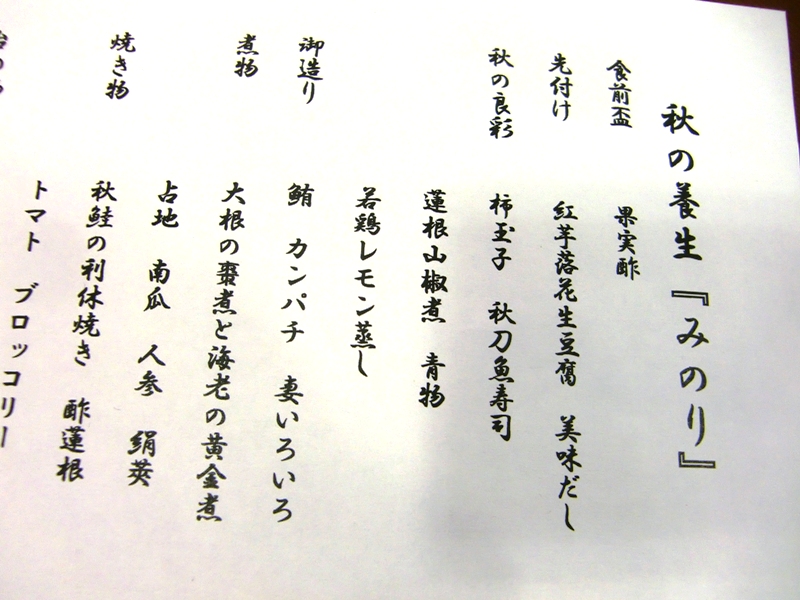 秋の養生『みのり』
食前盃 果実酢
先付け 紅芋落花生豆腐 美味だし
秋の良彩 柿玉子 秋刀魚寿司
蓮根山椒煮 青物
若鶏レモン蒸し
御造り 鮪 カンパチ 妻いろいろ
煮物 大根の棗煮と海老の黄金煮
占地 南瓜 人参 絹莢
焼き物 秋鮭の利休焼き 酢蓮根
トマト ブロッコリー